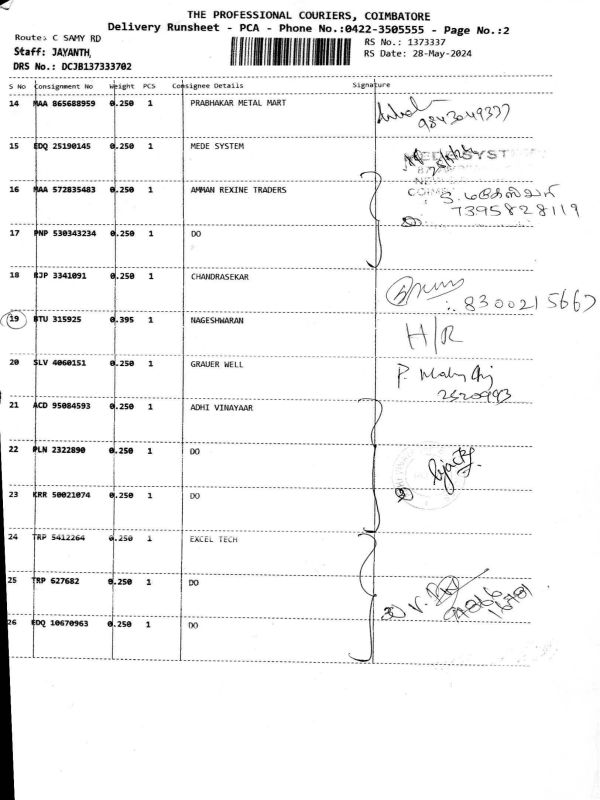 THE PROFESSIONAL COURIERS, COIMBATORE
Delivery Runsheet - PCA - Phone No.:0422-3505555 - Page No.:2
Route: C SAMY RD
RS No.: 1373337
Staff: JAYANTH,
RS Date: 28-May-2024
DRS No.: DCJB137333702
S No Consignment No Weight PCS Consignee Details Signature
14 MAA 865688959 0.250 1 PRABHAKAR METAL MART
9843049377
15 EDQ 25190145 0.250 1 MEDE SYSTEM
16 MAA 572835483 0.250 1 AMMAN REXINE TRADERS
7395828119
17 PNP 530343234 0.250 1 DO
18 RJP 3341091 0.250 1 CHANDRASEKAR
8300215667
19 BTU 315925 0.395 1 NAGESHWARAN H/R
20 SLV 4060151 0.250 1 GRAUER WELL
21 ACD 95084593 0.250 1 ADHI VINAYAAR
22 PLN 2322890 0.250 1 DO
23 KRR 50021074 0.250 1 DO
24 TRP 5412264 0.250 1 EXCEL TECH
25 TRP 627682 0.250 1 DO
26 EDQ 10670963 0.250 1 DO